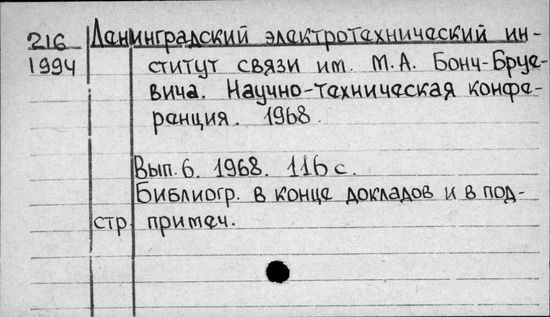 216 Ленинградский электротехнический ин-
1994 ститут связи им. М.А. Бонч-Бруе-
вича. Научно-техническая конфе-
ренция. 1968.
Вып. 6. 1968. 116 с.
Библиогр. в конце докладов и в под-
стр. примеч.